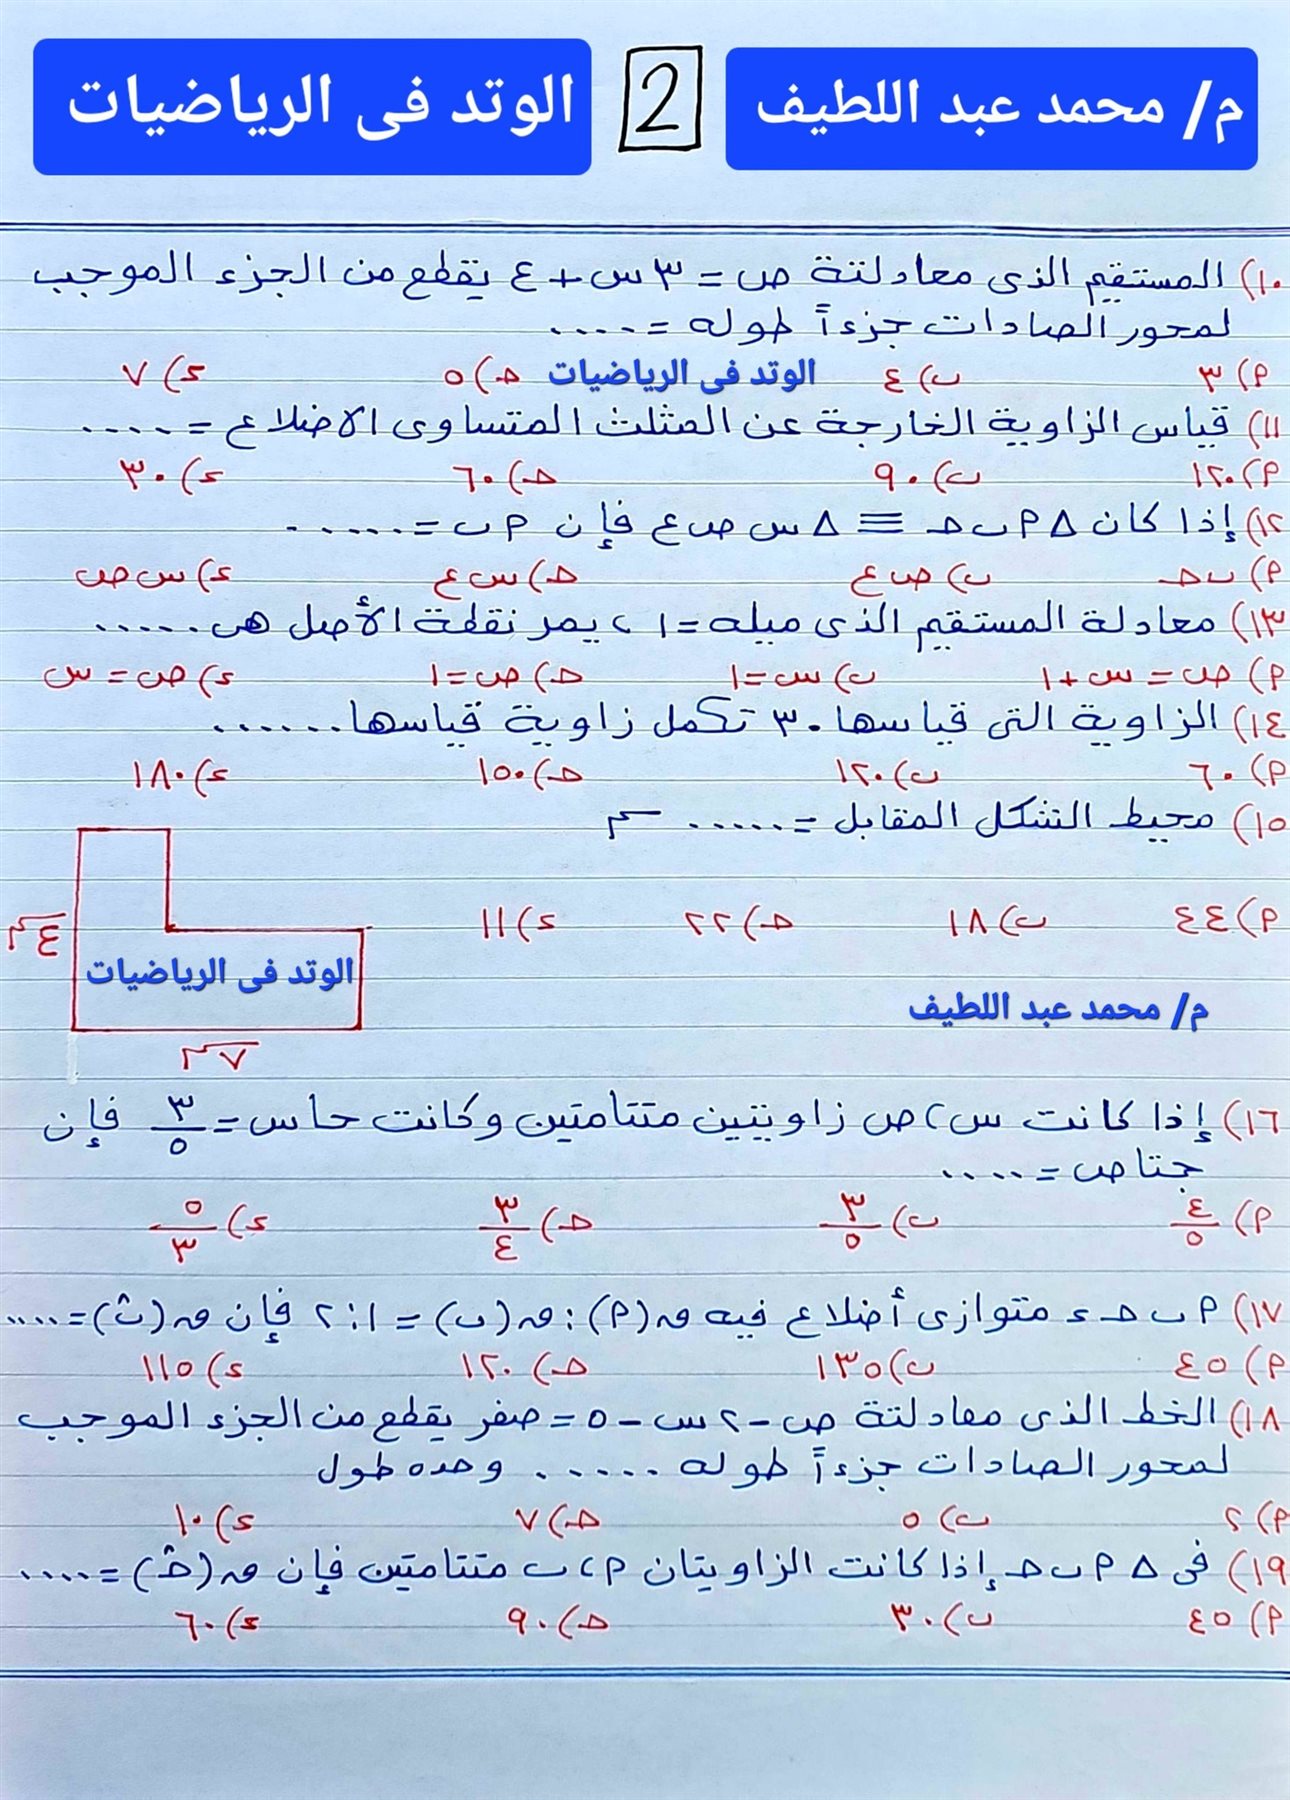 م/ محمد عبد اللطيف 2 الوتد فى الرياضيات
١٠) المستقيم الذى معادلتة ص = ٣س + ٤ يقطع من الجزء الموجب
لمحور الصادات جزءاً طوله = ....
م) ٣ ب) ٤ حـ) ٥ الوتد فى الرياضيات ء) ٧
١١) قياس الزاوية الخارجة عن المثلث المتساوى الاضلاع = ....
م) ١٢٠ ب) ٩٠ حـ) ٦٠ ء) ٣٠
١٢) إذا كان △ م ب حـ ≡ △ س ص ع فإن م ب = .....
م) ب حـ ب) ص ع حـ) س ع ء) س ص
١٣) معادلة المستقيم الذى ميله = ١ ، يمر نقطة الأصل هى .....
م) ص = س + ١ ب) س = ١ حـ) ص = ١ ء) ص = س
١٤) الزاوية التى قياسها ٣٠ تكمل زاوية قياسها ......
م) ٦٠ ب) ١٢٠ حـ) ١٥٠ ء) ١٨٠
١٥) محيط الشكل المقابل = ..... سم
م) ٤٤ ب) ١٨ حـ) ٢٢ ء) ١١
٤سم
الوتد فى الرياضيات
م/ محمد عبد اللطيف
٧سم
١٦) إذا كانت س ، ص زاويتين متتامتين وكانت حاس = ٣/٥ فإن
جتاص = ....
م) ٤/٥ ب) ٣/٥ حـ) ٣/٤ ء) ٥/٣
١٧) م ب حـ ء متوازى أضلاع فيه ق(م) : ق(ب) = ١ : ٢ فإن ق(ب̂) = ....
م) ٤٥ ب) ١٣٥ حـ) ١٢٠ ء) ١١٥
١٨) الخط الذى معادلتة ص - ٢س - ٥ = صفر يقطع من الجزء الموجب
لمحور الصادات جزءاً طوله ..... وحده طول
م) ٢ ب) ٥ حـ) ٧ ء) ١٠
١٩) فى △ م ب حـ إذا كانت الزاويتان م ، ب متتامتين فإن ق(حـ̂) = ....
م) ٤٥ ب) ٣٠ حـ) ٩٠ ء) ٦٠